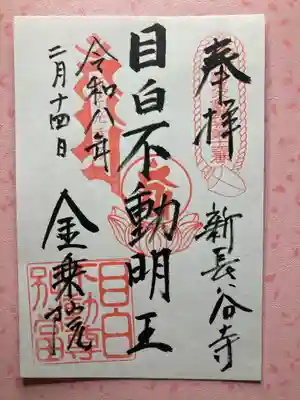 奉拝
新長谷寺
目白不動明王
令和八年
二月十四日
金乗院
目白
不動尊
別當